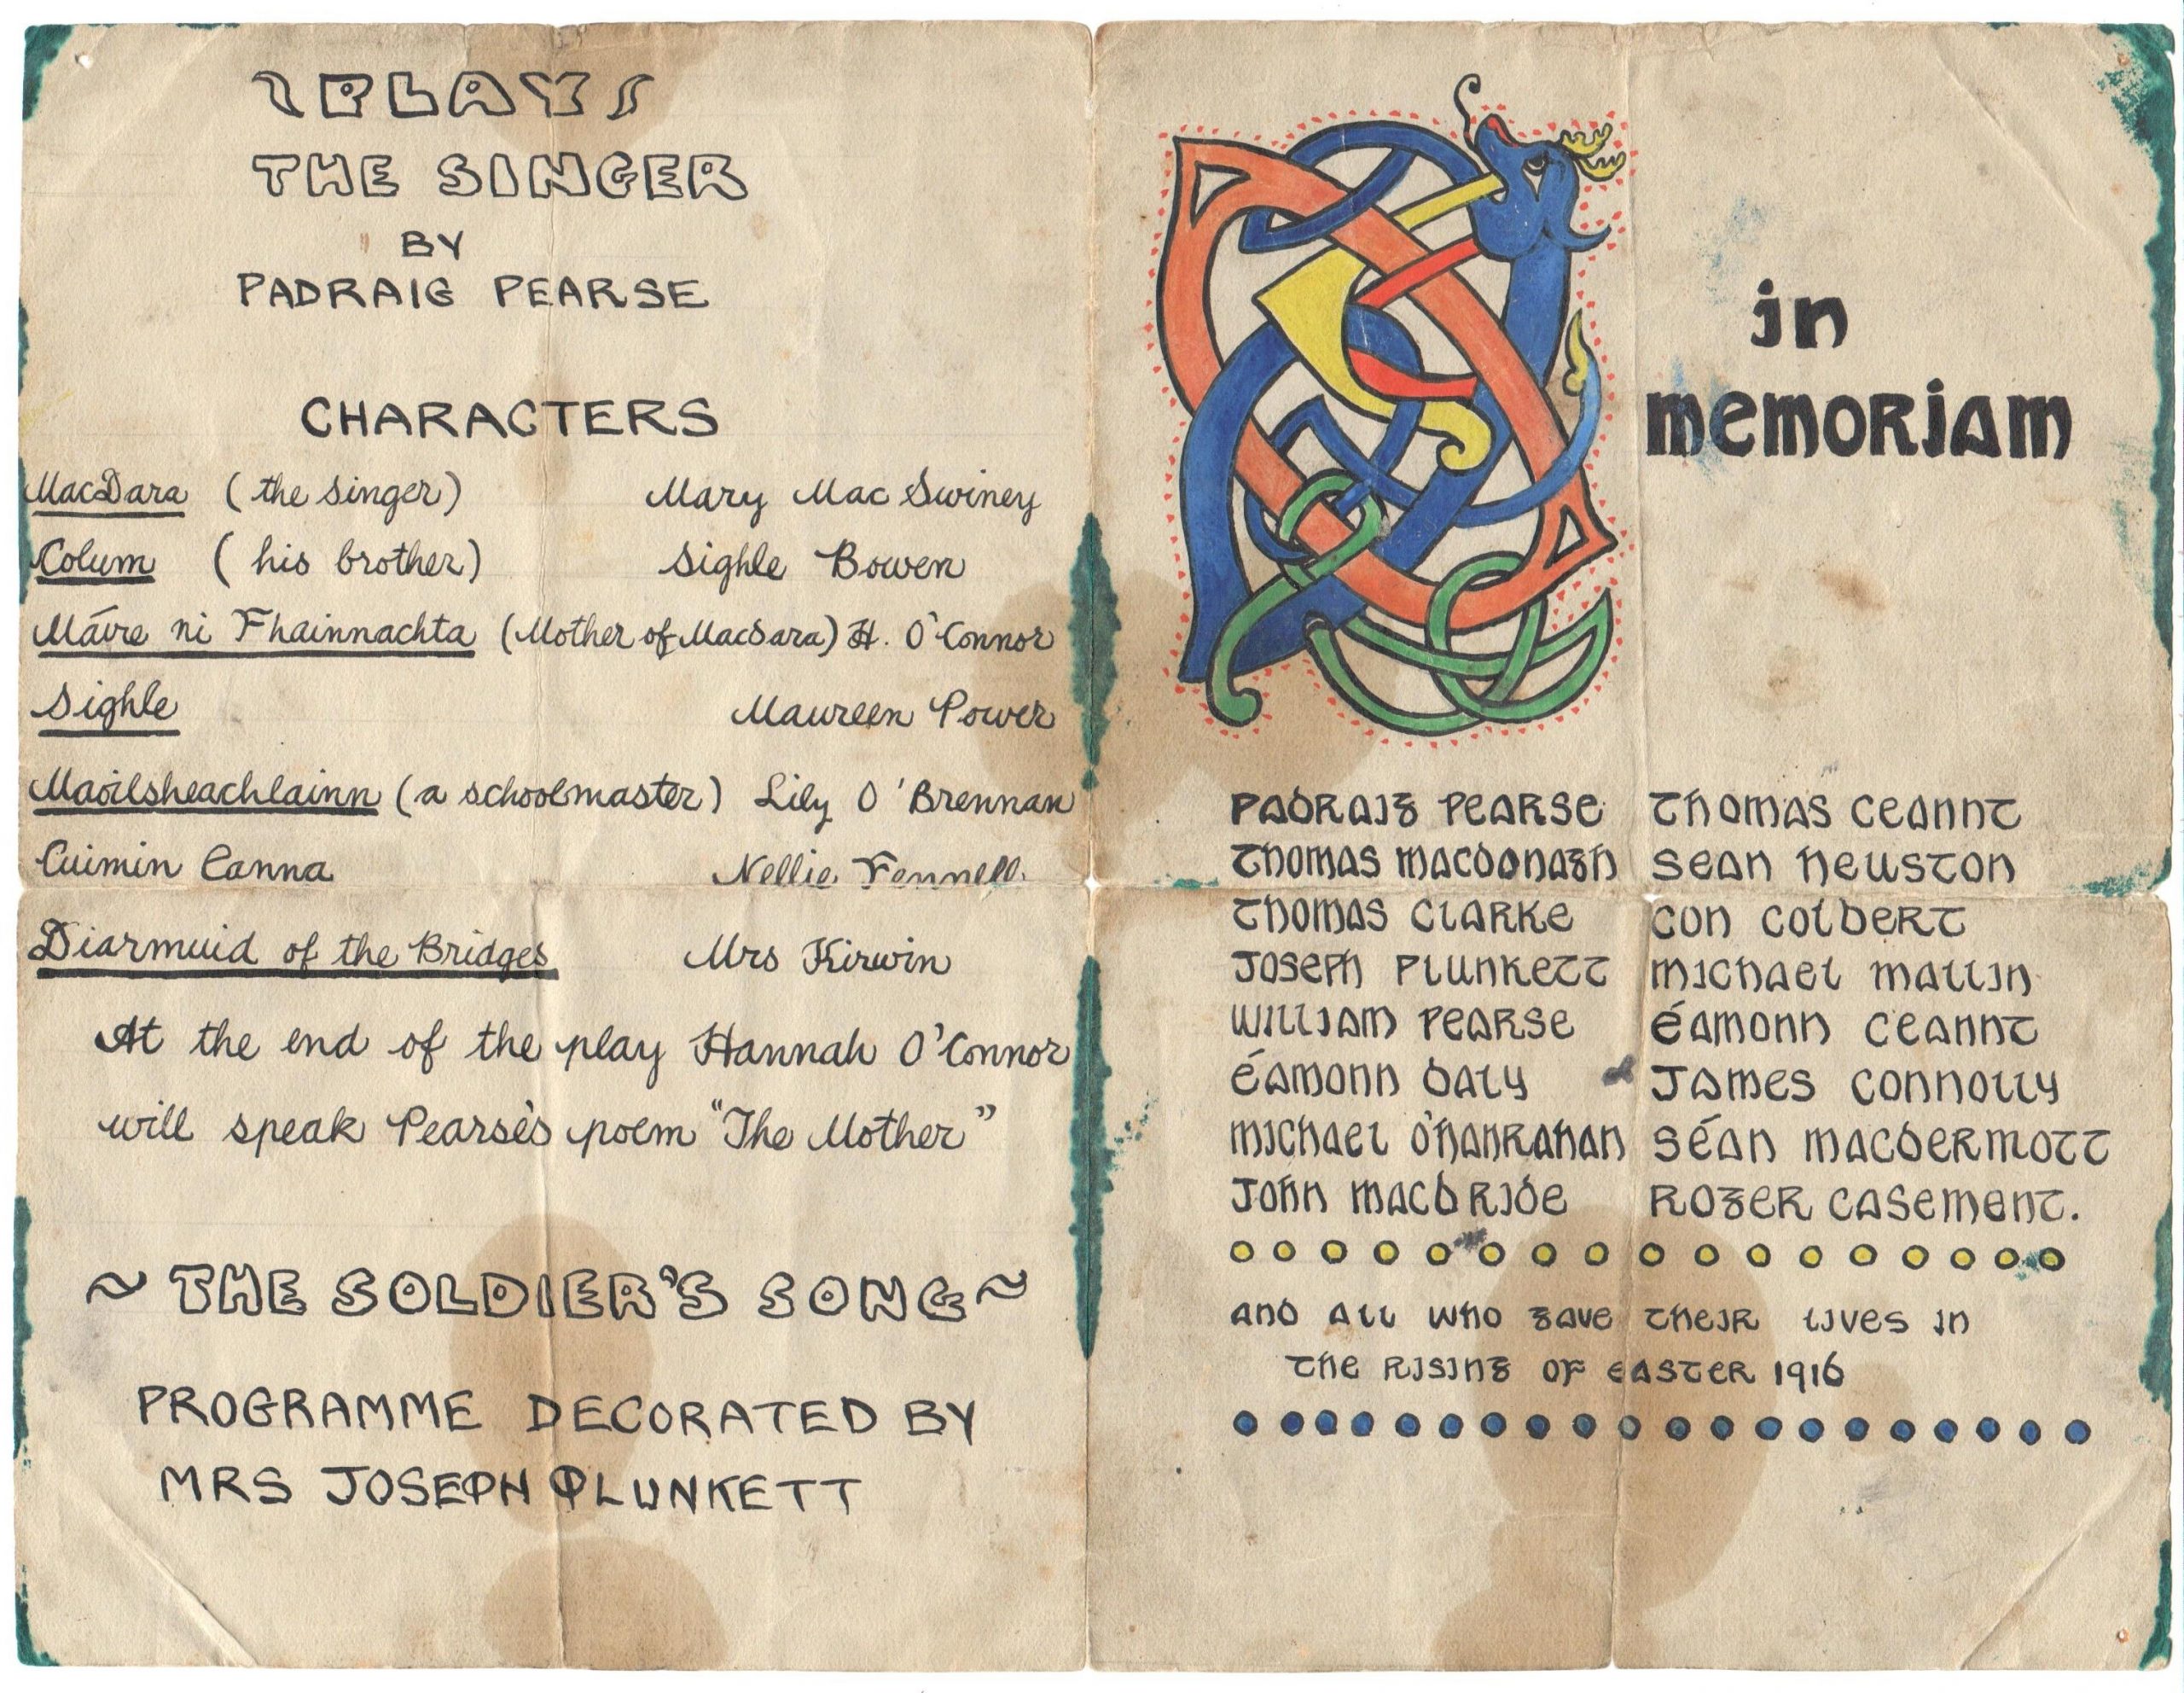 PLAYS
THE SINGER
BY
PADRAIG PEARSE
CHARACTERS
MacDara (the singer) Mary Mac Swiney
Colum (his brother) Sighle Bowen
Máire ni Fhainnachta (Mother of MacDara) H. O'Connor
Sighle Maureen Power
Maoilsheachlainn (a schoolmaster) Lily O'Brennan
Cuimin Canna Nellie Fennell.
Diarmuid of the Bridges Mrs Kirwin
At the end of the play Hannah O'Connor
will speak Pearse's poem "The Mother"
~ THE SOLDIER'S SONG ~
PROGRAMME DECORATED BY
MRS JOSEPH PLUNKETT
in
memoriam
Padraig Pearse Thomas Ceannt
Thomas MacDonagh Sean Heuston
Thomas Clarke Con Colbert
Joseph Plunkett Michael Mallin
William Pearse Éamonn Ceannt
Éamonn Daly James Connolly
Michael O'Hanrahan Séan MacDermott
John MacBride Roger Casement.
and all who gave their lives in
the rising of Easter 1916